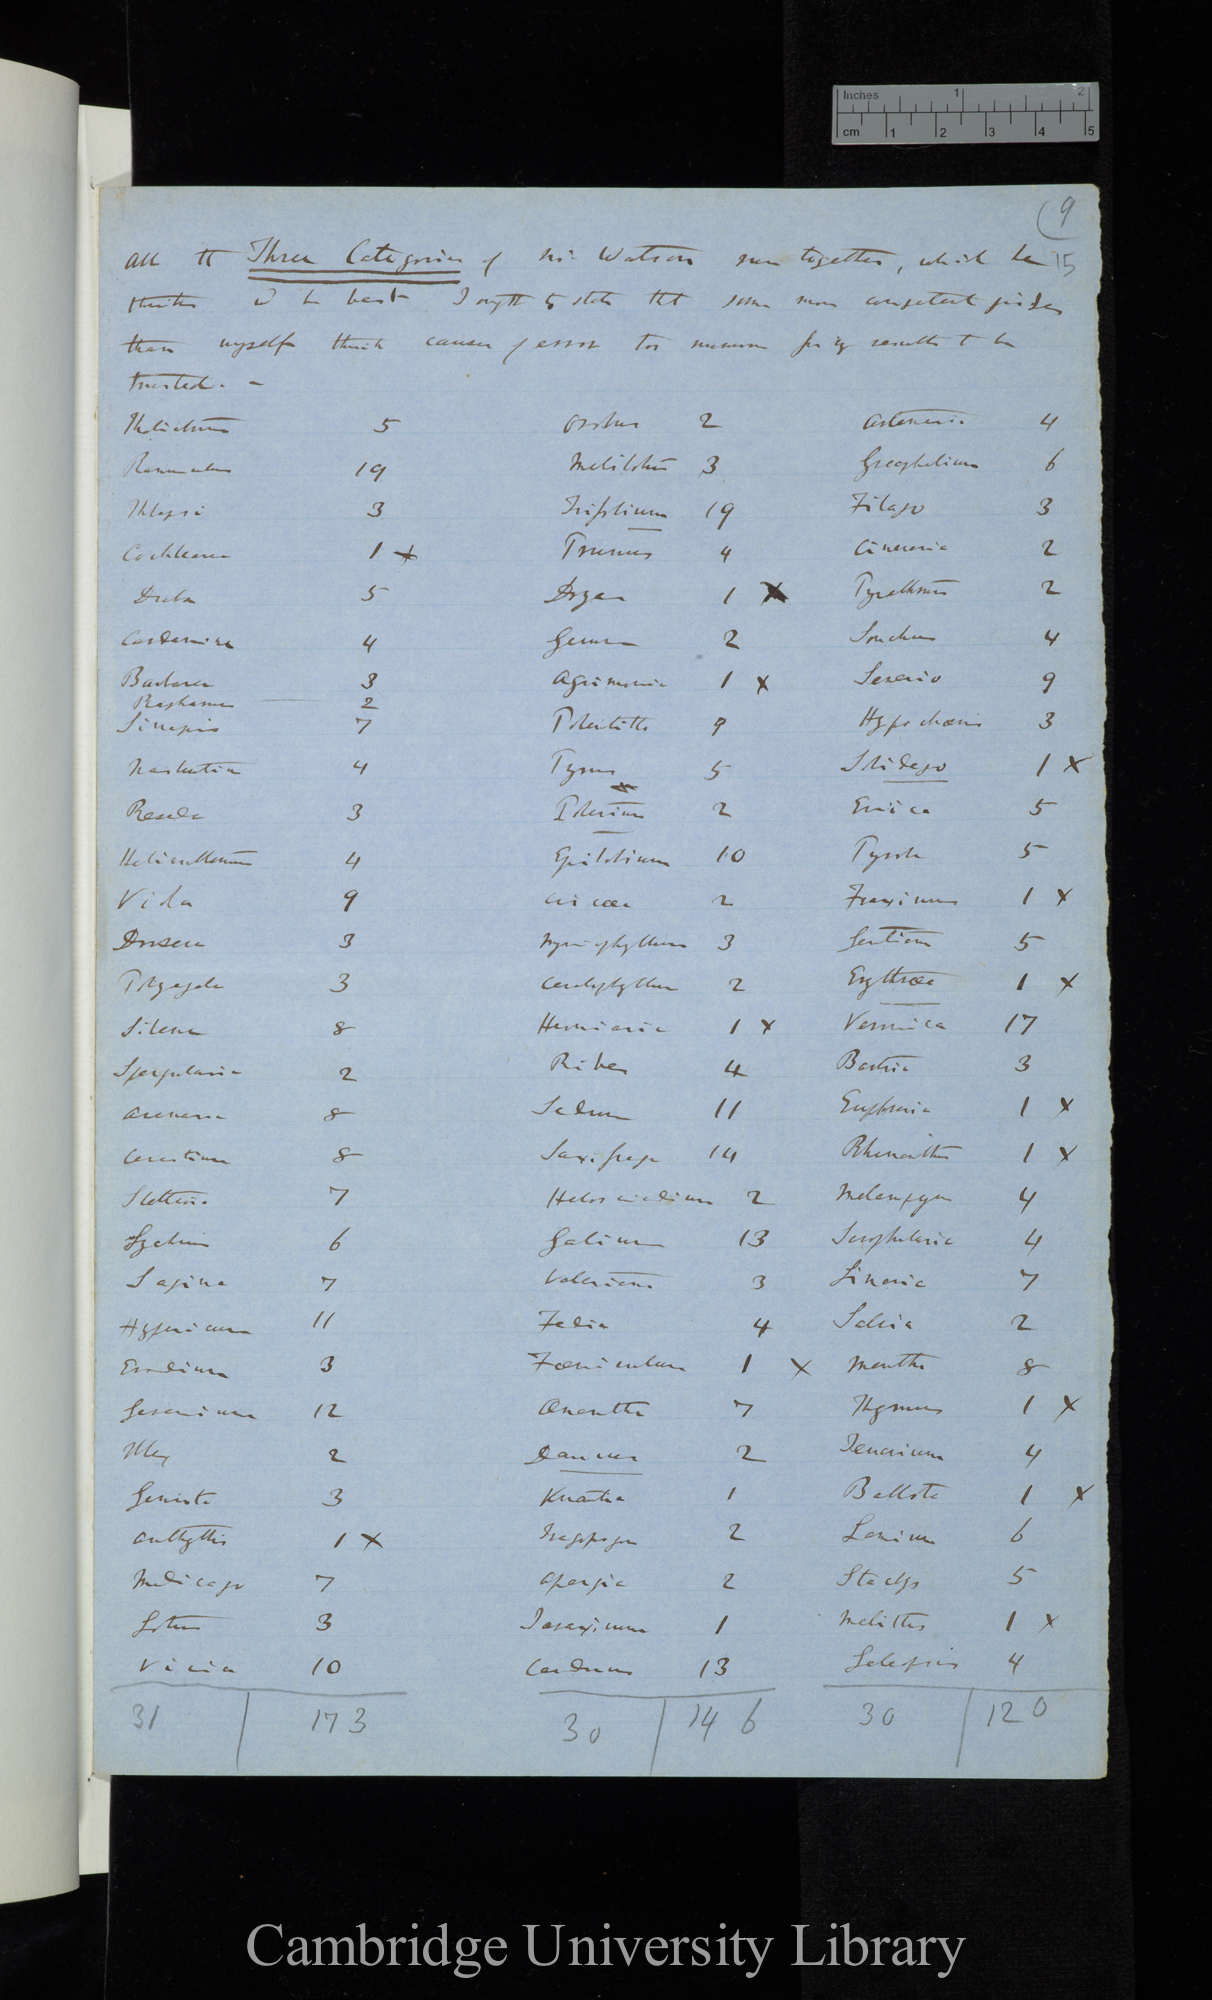 Inches 1 2
cm 1 2 3 4 5
(9
15
All the Three Categories of Mr Watson run together, which he
thinks wd be best I ought to state that some more competent judges
than myself think causes of error too numerous for my results to be
trusted. —
Thalictrum 5
Ranunculus 19
Thlaspi 3
Cochlearia 1 x
Draba 5
Cardamine 4
Barbarea 3
Raphanus 2
Sinapis 7
Nasturtium 4
Reseda 3
Helianthemum 4
Viola 9
Drosera 3
Polygala 3
Silene 8
Spergularia 2
Arenaria 8
Cerastium 8
Stellaria 7
Lychnis 6
Sagina 7
Hypericum 11
Erodium 3
Geranium 12
Ulex 2
Genista 3
Anthyllis 1 x
Medicago 7
Lotus 3
Vicia 10
31 | 173
Orobus 2
Melilotus 3
Trifolium 19
Prunus 4
Dryas 1 x
Geum 2
Agrimonia 1 x
Potentilla 9
Pyrus 5
Poterium 2
Epilobium 10
Circæa 2
Myriophyllum 3
Ceratophyllum 2
Herniaria 1 x
Ribes 4
Sedum 11
Saxifraga 14
Helosciadium 2
Galium 13
Valeriana 3
Fedia 4
Fœniculum 1 x
Œnanthe 7
Daucus 2
Knautia 1
Tragopogon 2
Apargia 2
Taraxicum 1
Carduus 13
30 | 146
Artemisia 4
Gnaphalium 6
Filago 3
Cineraria 2
Pyrethrum 2
Sonchus 4
Senecio 9
Hypochæris 3
Solidago 1 x
Erica 5
Pyrola 5
Fraxinus 1 x
Gentiana 5
Erythræa 1 x
Veronica 17
Bartsia 3
Euphrasia 1 x
Rhinanthus 1 x
Melampyrum 4
Scrophularia 4
Linaria 7
Salvia 2
Mentha 8
Thymus 1 x
Teucrium 4
Ballota 1 x
Lamium 6
Stachys 5
Melittis 1 x
Galeopsis 4
30 | 120
Cambridge University Library